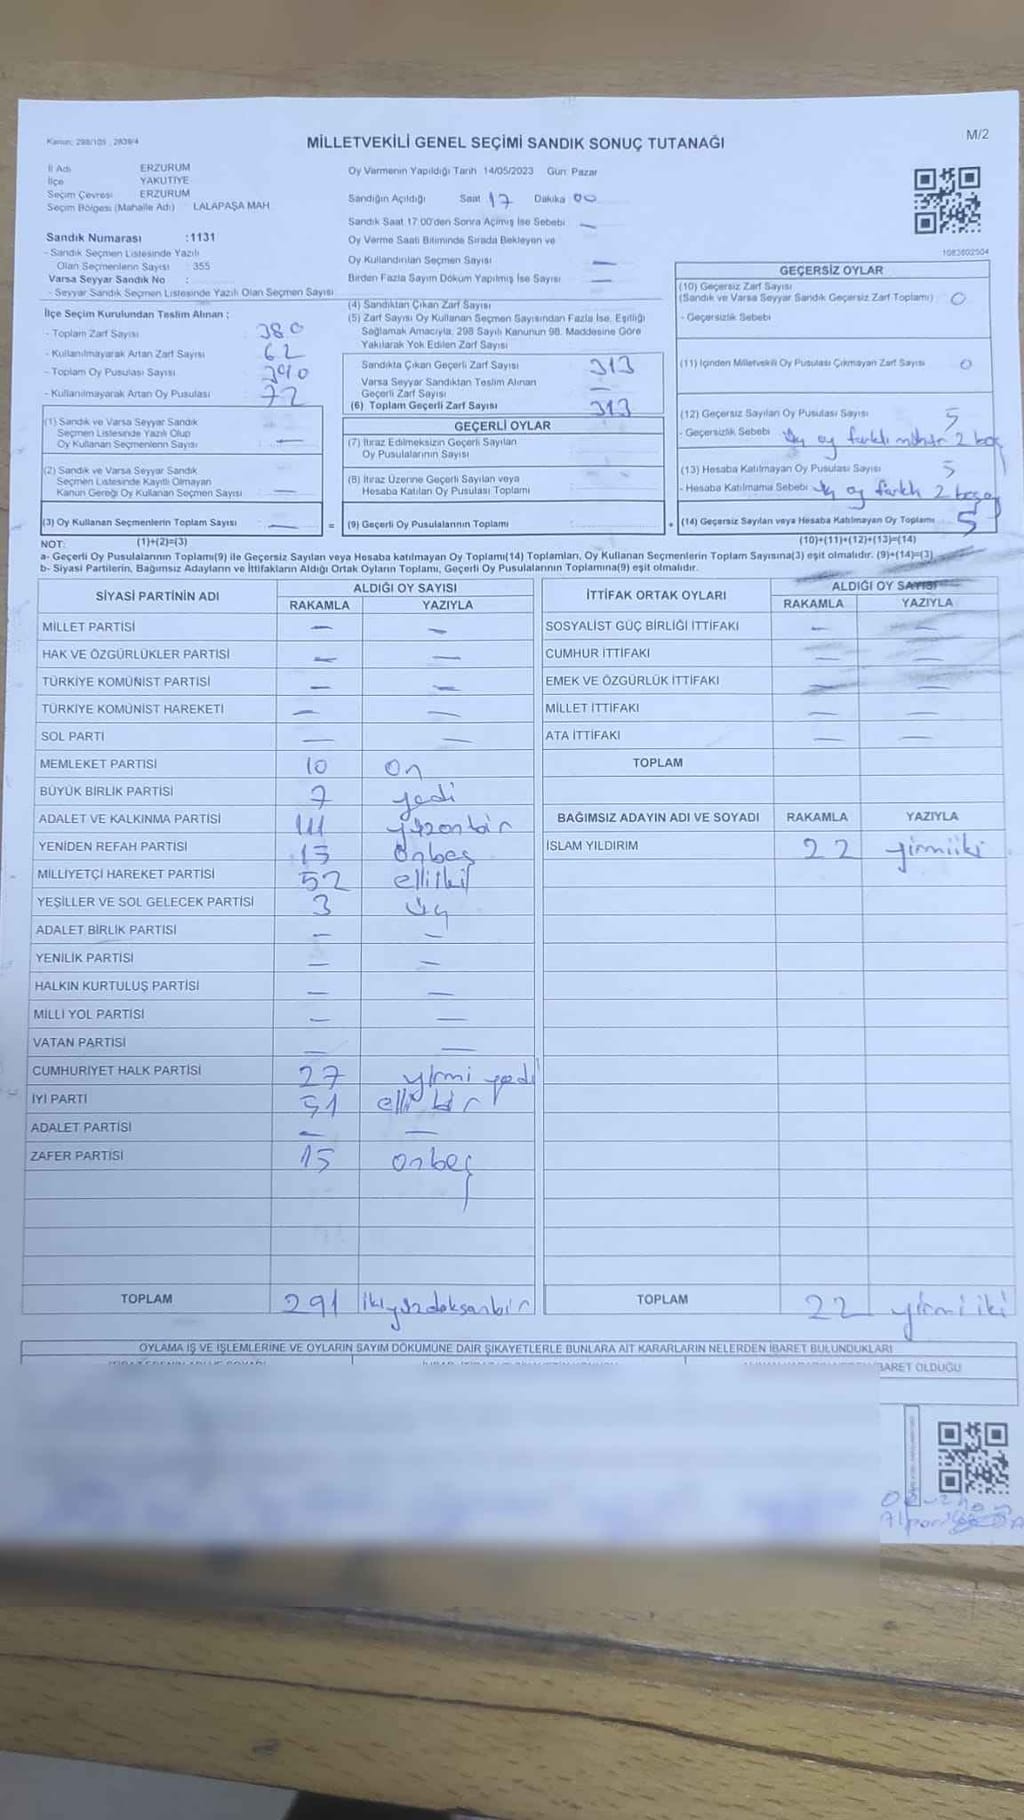 Kanun: 298/105 , 2839/4
MİLLETVEKİLİ GENEL SEÇİMİ SANDIK SONUÇ TUTANAĞI
M/2
İl Adı ERZURUM
İlçe YAKUTİYE
Seçim Çevresi ERZURUM
Seçim Bölgesi (Mahalle Adı) LALAPAŞA MAH.
Sandık Numarası :1131
- Sandık Seçmen Listesinde Yazılı
Olan Seçmenlerin Sayısı : 355
Varsa Seyyar Sandık No :
- Seyyar Sandık Seçmen Listesinde Yazılı Olan Seçmen Sayısı
İlçe Seçim Kurulundan Teslim Alınan ;
- Toplam Zarf Sayısı 380
- Kullanılmayarak Artan Zarf Sayısı 62
- Toplam Oy Pusulası Sayısı 390
- Kullanılmayarak Artan Oy Pusulası 72
(1) Sandık ve Varsa Seyyar Sandık
Seçmen Listesinde Yazılı Olup
Oy Kullanan Seçmenlerin Sayısı —
(2) Sandık ve Varsa Seyyar Sandık
Seçmen Listesinde Kayıtlı Olmayan
Kanun Gereği Oy Kullanan Seçmen Sayısı —
(3) Oy Kullanan Seçmenlerin Toplam Sayısı — =
Oy Vermenin Yapıldığı Tarih 14/05/2023 Gün: Pazar
Sandığın Açıldığı Saat 17 Dakika 00
Sandık Saat 17:00'den Sonra Açılmış İse Sebebi —
Oy Verme Saati Bitiminde Sırada Bekleyen ve
Oy Kullandırılan Seçmen Sayısı —
Birden Fazla Sayım Döküm Yapılmış İse Sayısı —
(4) Sandıktan Çıkan Zarf Sayısı
(5) Zarf Sayısı Oy Kullanan Seçmen Sayısından Fazla İse, Eşitliği
Sağlamak Amacıyla, 298 Sayılı Kanunun 98. Maddesine Göre
Yakılarak Yok Edilen Zarf Sayısı
Sandıkta Çıkan Geçerli Zarf Sayısı 313
Varsa Seyyar Sandıktan Teslim Alınan
Geçerli Zarf Sayısı —
(6) Toplam Geçerli Zarf Sayısı 313
GEÇERLİ OYLAR
(7) İtiraz Edilmeksizin Geçerli Sayılan
Oy Pusulalarının Sayısı
(8) İtiraz Üzerine Geçerli Sayılan veya
Hesaba Katılan Oy Pusulası Toplamı
(9) Geçerli Oy Pusulalarının Toplamı +
1083802504
GEÇERSİZ OYLAR
(10) Geçersiz Zarf Sayısı
(Sandık ve Varsa Seyyar Sandık Geçersiz Zarf Toplamı) 0
- Geçersizlik Sebebi
(11) İçinden Milletvekili Oy Pusulası Çıkmayan Zarf Sayısı 0
(12) Geçersiz Sayılan Oy Pusulası Sayısı 5
- Geçersizlik Sebebi Üç oy farklı mühür 2 boş
(13) Hesaba Katılmayan Oy Pusulası Sayısı 5
- Hesaba Katılmama Sebebi Üç oy farklı 2 boş oy
(14) Geçersiz Sayılan veya Hesaba Katılmayan Oy Toplamı 5
NOT: (1)+(2)=(3) (10)+(11)+(12)+(13)=(14)
a- Geçerli Oy Pusulalarının Toplamı(9) ile Geçersiz Sayılan veya Hesaba katılmayan Oy Toplamı(14) Toplamları, Oy Kullanan Seçmenlerin Toplam Sayısına(3) eşit olmalıdır. (9)+(14)=(3)
b- Siyasi Partilerin, Bağımsız Adayların ve İttifakların Aldığı Ortak Oyların Toplamı, Geçerli Oy Pusulalarının Toplamına(9) eşit olmalıdır.
SİYASİ PARTİNİN ADI ALDIĞI OY SAYISI
RAKAMLA YAZIYLA
MİLLET PARTİSİ — —
HAK VE ÖZGÜRLÜKLER PARTİSİ — —
TÜRKİYE KOMÜNİST PARTİSİ — —
TÜRKİYE KOMÜNİST HAREKETİ — —
SOL PARTİ — —
MEMLEKET PARTİSİ 10 On
BÜYÜK BİRLİK PARTİSİ 7 yedi
ADALET VE KALKINMA PARTİSİ 111 yüzonbir
YENİDEN REFAH PARTİSİ 15 Onbeş
MİLLİYETÇİ HAREKET PARTİSİ 52 elliiki
YEŞİLLER VE SOL GELECEK PARTİSİ 3 üç
ADALET BİRLİK PARTİSİ — —
YENİLİK PARTİSİ — —
HALKIN KURTULUŞ PARTİSİ — —
MİLLİ YOL PARTİSİ — —
VATAN PARTİSİ — —
CUMHURİYET HALK PARTİSİ 27 yirmi yedi
İYİ PARTİ 51 elli bir
ADALET PARTİSİ — —
ZAFER PARTİSİ 15 onbeş
TOPLAM 291 ikiyüzdoksanbir
İTTİFAK ORTAK OYLARI ALDIĞI OY SAYISI
RAKAMLA YAZIYLA
SOSYALİST GÜÇ BİRLİĞİ İTTİFAKI — —
CUMHUR İTTİFAKI — —
EMEK VE ÖZGÜRLÜK İTTİFAKI — —
MİLLET İTTİFAKI — —
ATA İTTİFAKI — —
TOPLAM
BAĞIMSIZ ADAYIN ADI VE SOYADI RAKAMLA YAZIYLA
İSLAM YILDIRIM 22 yirmiiki
TOPLAM 22 yirmi iki
OYLAMA İŞ VE İŞLEMLERİNE VE OYLARIN SAYIM DÖKÜMÜNE DAİR ŞİKAYETLERLE BUNLARA AİT KARARLARIN NELERDEN İBARET BULUNDUKLARI
BARET OLDUĞU